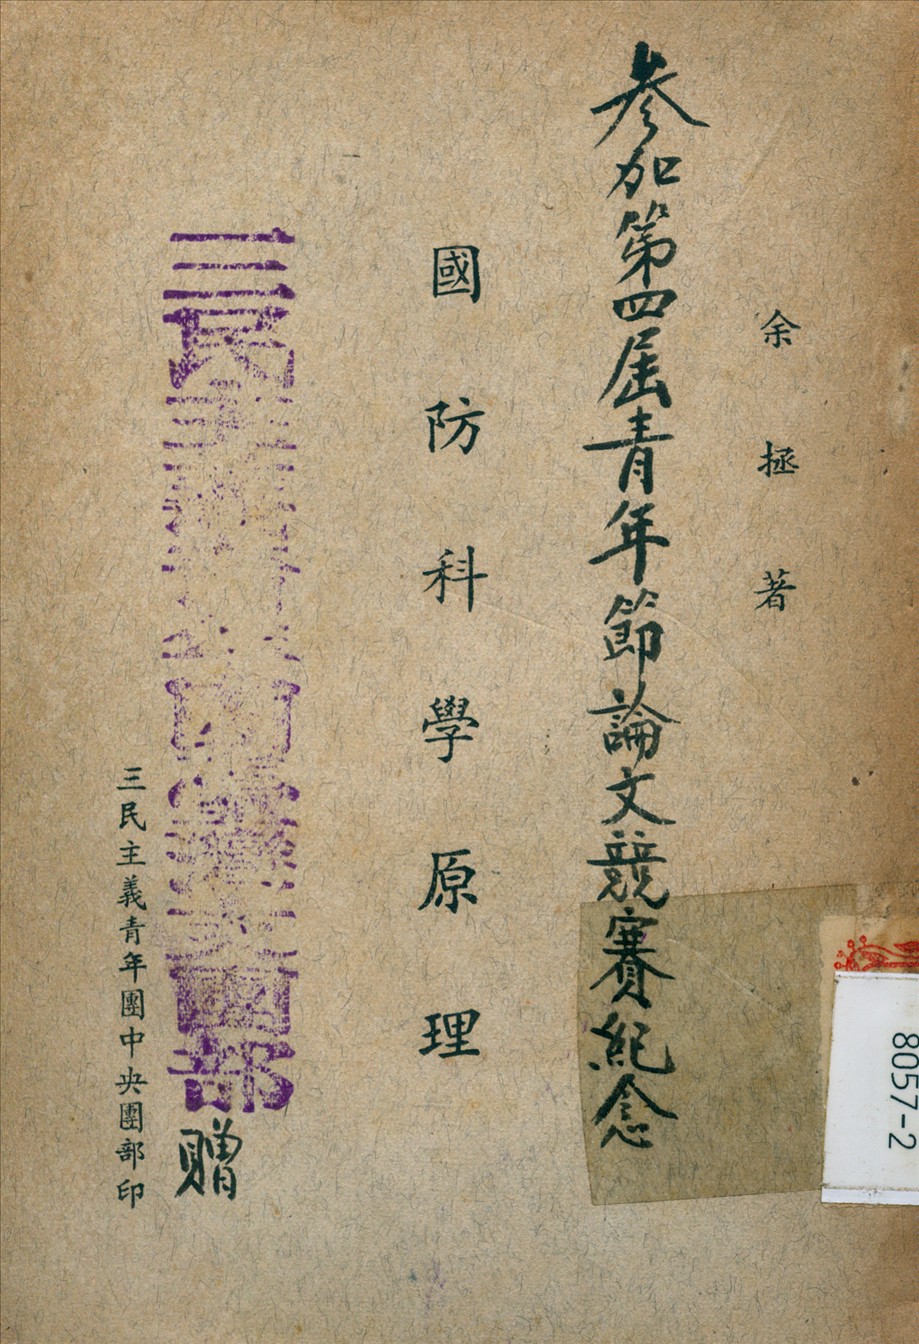 余拯著
参加第四屆青年節論文競賽紀念
國防科學原理
三民主義青年團 部
贈
三民主義青年團中央團部印
8057-2